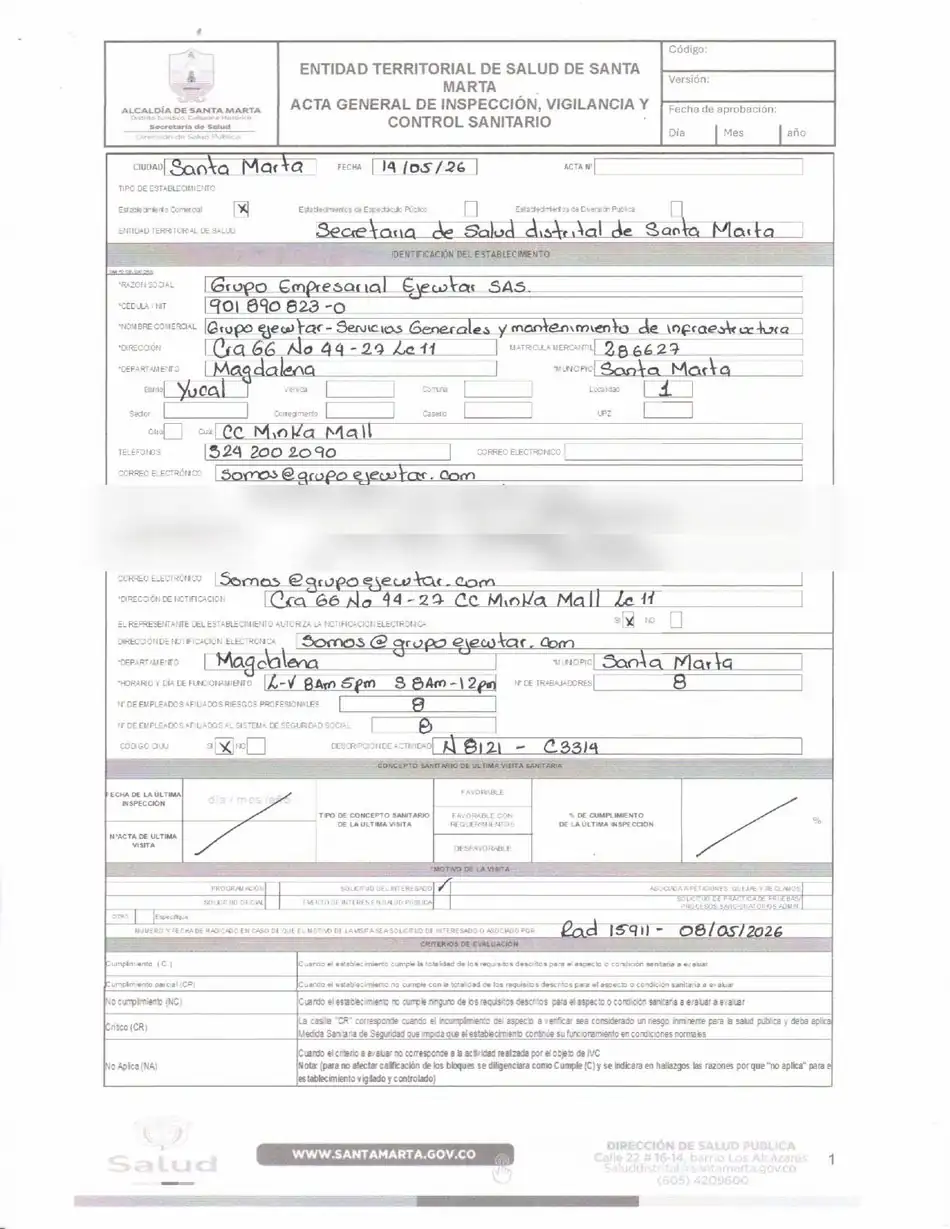 ALCALDÍA DE SANTA MARTA
Distrito Turístico, Cultural e Histórico
Secretaría de Salud
Dirección de Salud Pública
ENTIDAD TERRITORIAL DE SALUD DE SANTA MARTA
ACTA GENERAL DE INSPECCIÓN, VIGILANCIA Y CONTROL SANITARIO
Código:
Versión:
Fecha de aprobación:
Día Mes año
CIUDAD Santa Marta FECHA 14/05/26 ACTA N°
TIPO DE ESTABLECIMIENTO
Establecimiento Comercial X Establecimientos de Espectáculo Público Establecimientos de Diversión Publica
ENTIDAD TERRITORIAL DE SALUD Secretaria de Salud distrital de Santa Marta
IDENTIFICACIÓN DEL ESTABLECIMIENTO
*RAZON SOCIAL Grupo Empresarial Ejecutar SAS.
*CEDULA / NIT 901 890 823 -0
*NOMBRE COMERCIAL Grupo ejecutar - Servicios Generales y mantenimiento de infraestructura
*DIRECCIÓN Cra 66 No 44-27 Lc 11 MATRICULA MERCANTIL 286627
*DEPARTAMENTO Magdalena *MUNICIPIO Santa Marta
Barrio Yucal Vereda Comuna Localidad 1
Sector Corregimiento Caserio UPZ
Otro Cual CC Minka Mall
TELÉFONOS 324 200 2090 CORREO ELECTRÓNICO
CORREO ELECTRÓNICO Somos@grupoejecutar.com
CORREO ELECTRÓNICO Somos @grupoejecutar.com
*DIRECCIÓN DE NOTIFICACIÓN Cra 66 No 44-27 CC Minka Mall Lc 11
EL REPRESENTANTE DEL ESTABLECIMIENTO AUTORIZA LA NOTIFICACION ELECTRÓNICA SI X NO
DIRECCIÓN DE NOTIFICACIÓN ELECTRONICA Somos@grupoejecutar.com
*DEPARTAMENTO Magdalena *MUNICIPIO Santa Marta
*HORARIO Y DÍA DE FUNCIONAMIENTO L-V 8Am 5pm S 8Am-12pm N° DE TRABAJADORES 8
N° DE EMPLEADOS AFILIADOS RIESGOS PROFESIONALES 8
N° DE EMPLEADOS AFILIADOS AL SISTEMA DE SEGURIDAD SOCIAL 8
CÓDIGO CIIU SI X NO DESCRIPCIÓN DE ACTIVIDAD N 8121 - C3314
CONCEPTO SANITARIO DE ULTIMA VISITA SANITARIA
FECHA DE LA ÚLTIMA INSPECCIÓN día / mes /año
N°ACTA DE ULTIMA VISITA
TIPO DE CONCEPTO SANITARIO DE LA ULTIMA VISITA
FAVORABLE
FAVORABLE CON REQUERIMIENTOS
DESFAVORABLE
% DE CUMPLIMIENTO DE LA ÚLTIMA INSPECCIÓN %
*MOTIVO DE LA VISITA
PROGRAMACIÓN SOLICITUD DEL INTERESADO ✓ ASOCIADA A PETICIONES, QUEJAS Y RECLAMOS
SOLICITUD OFICIAL EVENTO DE INTERES EN SALUD PÚBLICA SOLICITUD DE PRACTICA DE PRUEBAS/ PROCESOS SANCIONATORIOS ADMIN.
OTRO Especifique
NUMERO Y FECHA DE RADICADO EN CASO DE QUE EL MOTIVO DE LA VISITA SEA SOLICITUD DE INTERESADO O ASOCIADO PQR Rad 15911 - 08/05/2026
CRITERIOS DE EVALUACIÓN
Cumplimiento (C) Cuando el establecimiento cumple la totalidad de los requisitos descritos para el aspecto o condición sanitaria a evaluar
Cumplimiento parcial (CP) Cuando el establecimiento no cumple con la totalidad de los requisitos descritos para el aspecto o condición sanitaria a evaluar
No cumplimiento (NC) Cuando el establecimiento no cumple ninguno de los requisitos descritos para el aspecto o condición sanitaria a evaluar a evaluar
Crítico (CR) La casilla "CR" corresponde cuando el incumplimiento del aspecto a verificar sea considerado un riesgo inminente para la salud pública y deba aplica
Medida Sanitaria de Seguridad que impida que el establecimiento continúe su funcionamiento en condiciones normales
No Aplica (NA) Cuando el criterio a evaluar no corresponde a la actividad realizada por el objeto de IVC
Nota: (para no afectar calificación de los bloques se diligenciara como Cumple (C) y se indicara en hallazgos las razones por que "no aplica" para e
establecimiento vigilado y controlado)
Salud
WWW.SANTAMARTA.GOV.CO
DIRECCIÓN DE SALUD PUBLICA
Calle 22 # 16-14, barrio Los Alcázares
Saluddistrital@santamarta.gov.co
(605) 4209600
1